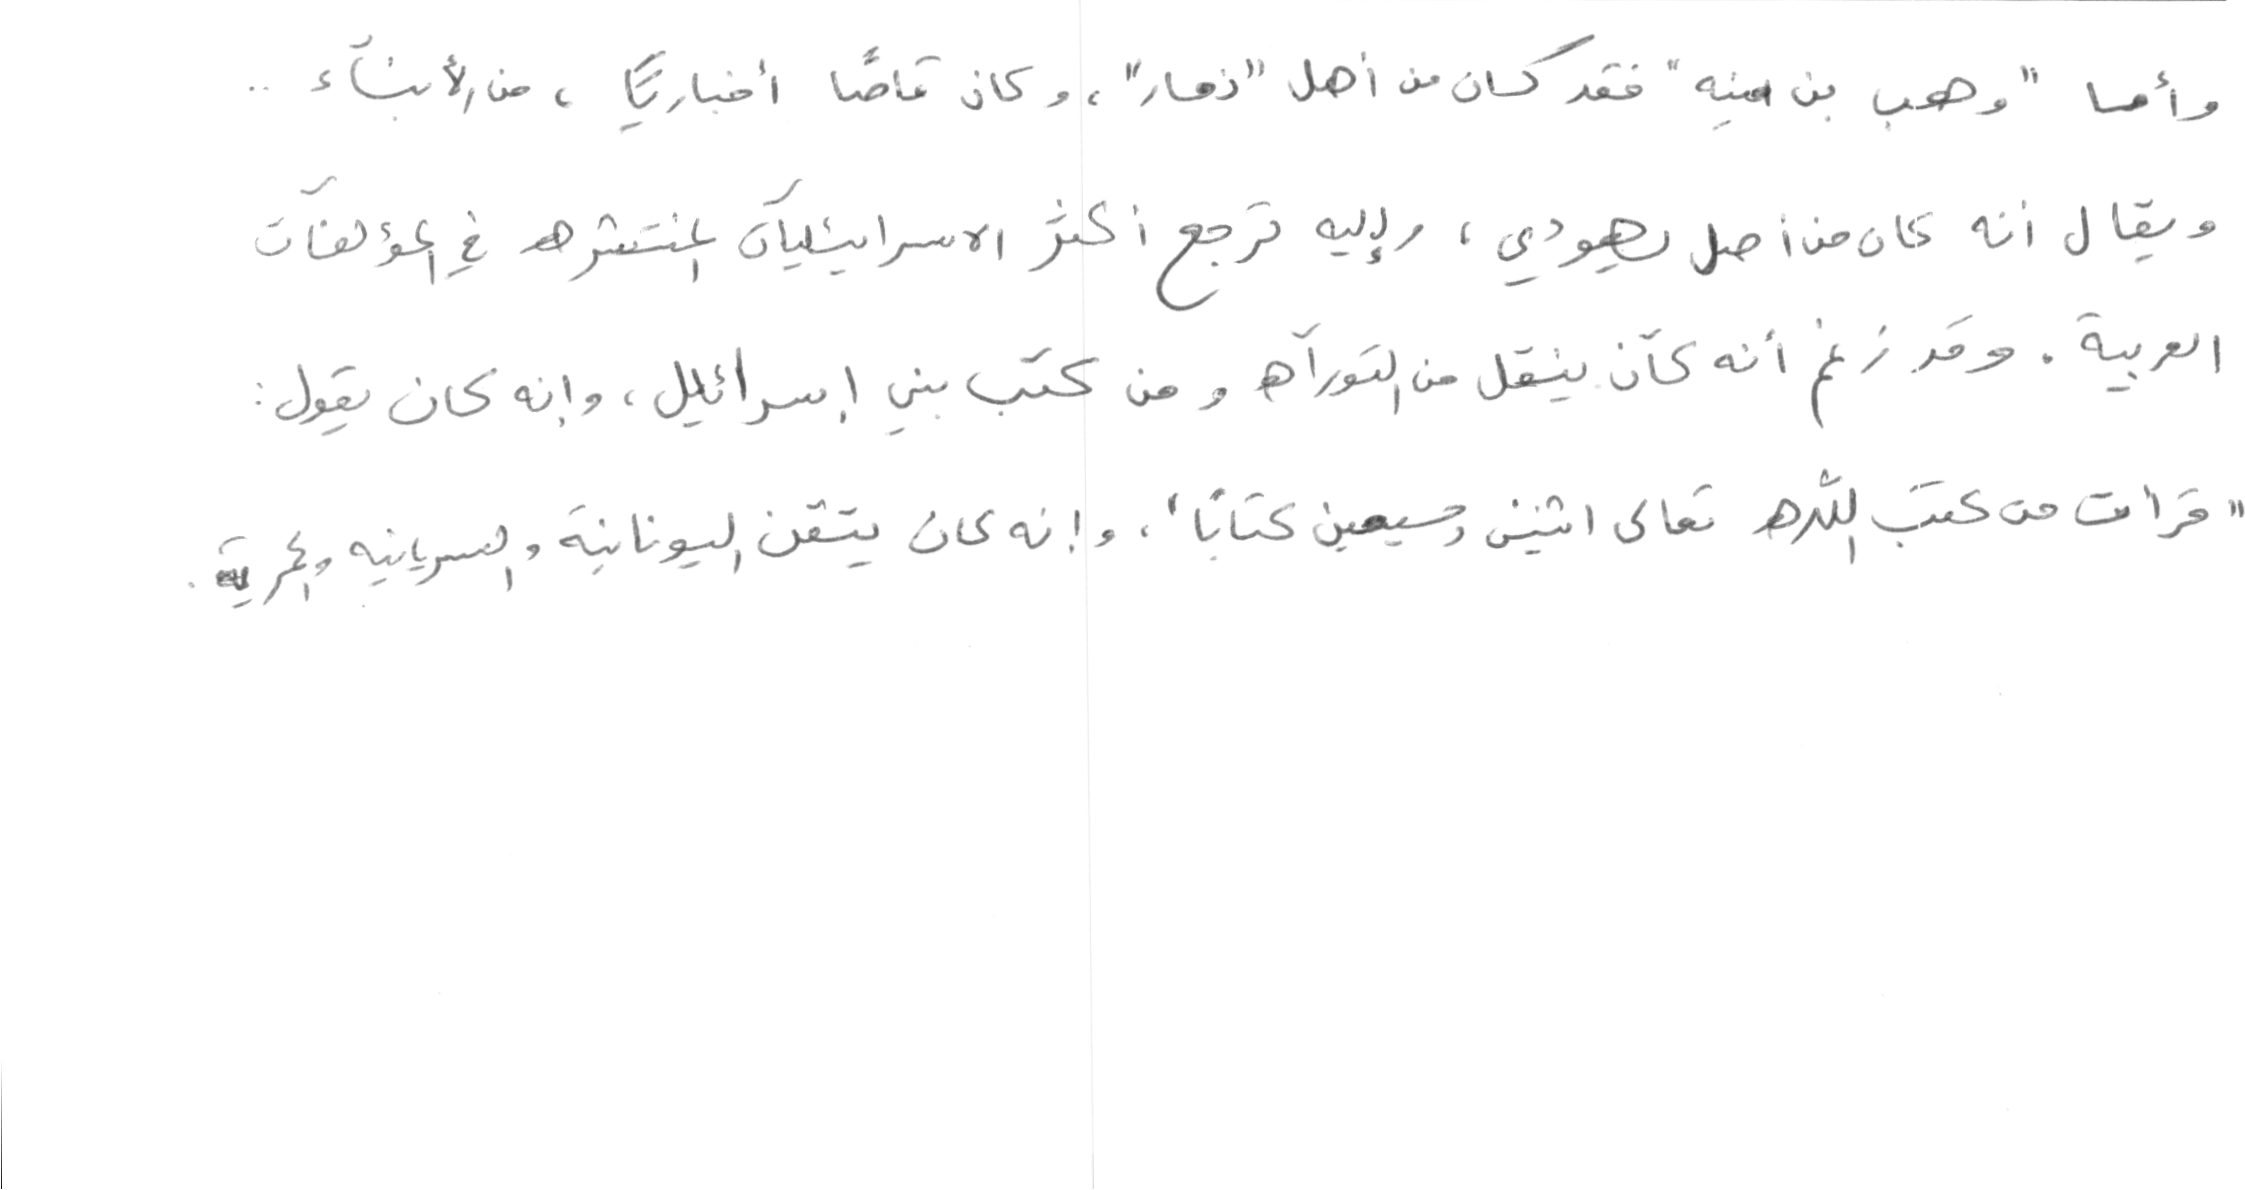 وأما "وهب بن منبه" فقد كان من أهل "ذمار"، وكان قاصًا أخباريًا، من الأبناء ..
ويقال أنه كان من أصل يهودي، وإليه ترجع أكثر الاسرائيليات المنتشره في المؤلفات
العربية. وقد زعم أنه كان ينقل من التوراه ومن كتب بني إسرائيل، وإنه كان يقول:
"قرأت من كتب الله تعالى اثنين وسبعين كتابًا"، وإنه كان يتقن اليونانية والسريانيه والحميرية.